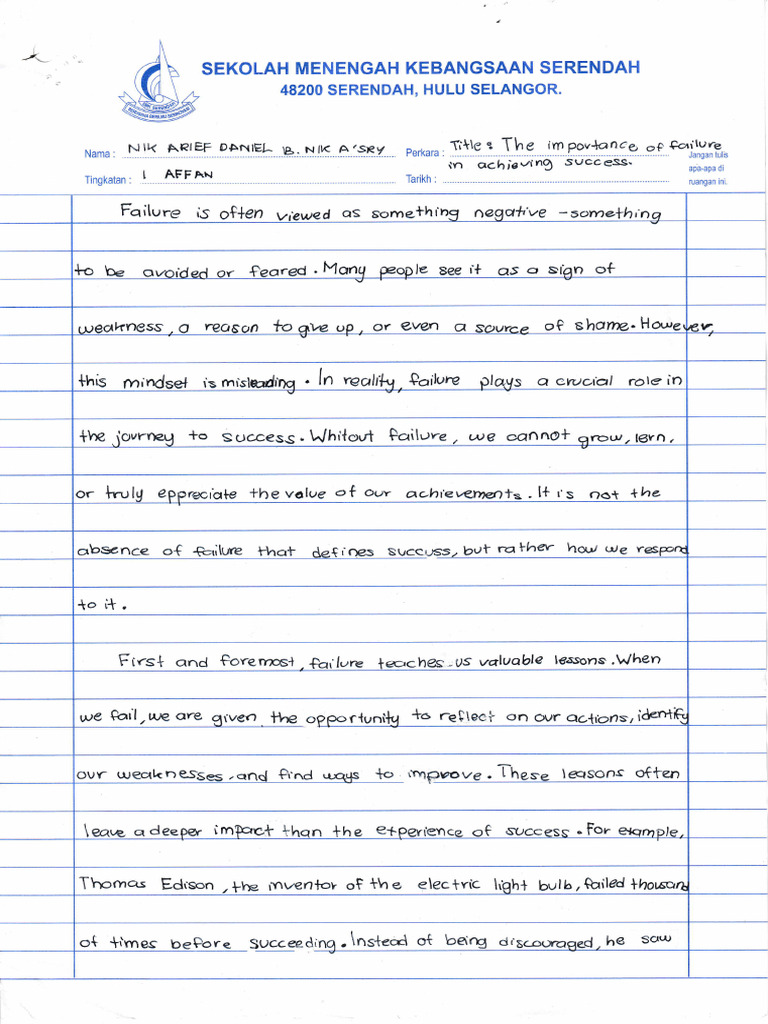 SEKOLAH MENENGAH KEBANGSAAN SERENDAH
48200 SERENDAH, HULU SELANGOR.
Nama : NIK ARIEF DANIEL B. NIK A'SRY
Perkara : Title : The importance of failure
in achieving success.
Tingkatan : 1 AFFAN
Tarikh :
Jangan tulis
apa-apa di
ruangan ini.
Failure is often viewed as something negative - something
to be avoided or feared. Many people see it as a sign of
weakness, a reason to give up, or even a source of shame. However,
this mindset is misleading. In reality, failure plays a crucial role in
the journey to success. Whitout failure, we cannot grow, lern,
or truly eppreciate the value of our achievements. It is not the
absence of failure that defines succuss, but rather how we respond
to it.
First and foremost, failure teaches us valuable lessons. When
we fail, we are given the opportunity to reflect on our actions, identify
our weaknesses, and find ways to improve. These leasons often
leave a deeper impact than the experience of success. For example,
Thomas Edison, the inventor of the electric light bulb, failed thousand
of times before succeeding. Instead of being discouraged, he saw